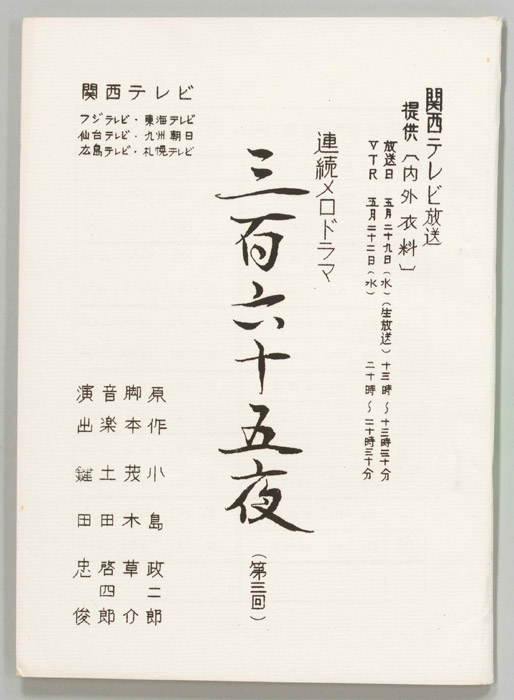 関西テレビ放送
提供〔内外衣料〕
放送日 五月二十九日(水)(生放送)十三時〜十三時三十分
VTR 五月二十二日(水) 二十時〜二十時三十分
連続メロドラマ
三百六十五夜
(第三回)
関西テレビ
フジテレビ・東海テレビ
仙台テレビ・九州朝日
広島テレビ・札幌テレビ
原作 小島政二郎
脚本 茂木草介
音楽 土田啓四郎
演出 鍵田忠俊